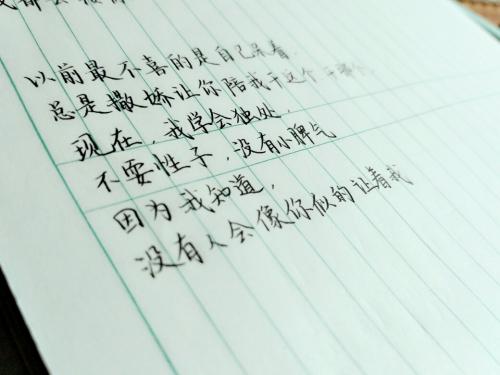 以前最不喜的是自己呆着.
总是撒娇让你陪我干这个干那个
现在,我学会独处.
不耍性子,没有小脾气
因为我知道,
没有人会像你似的让着我